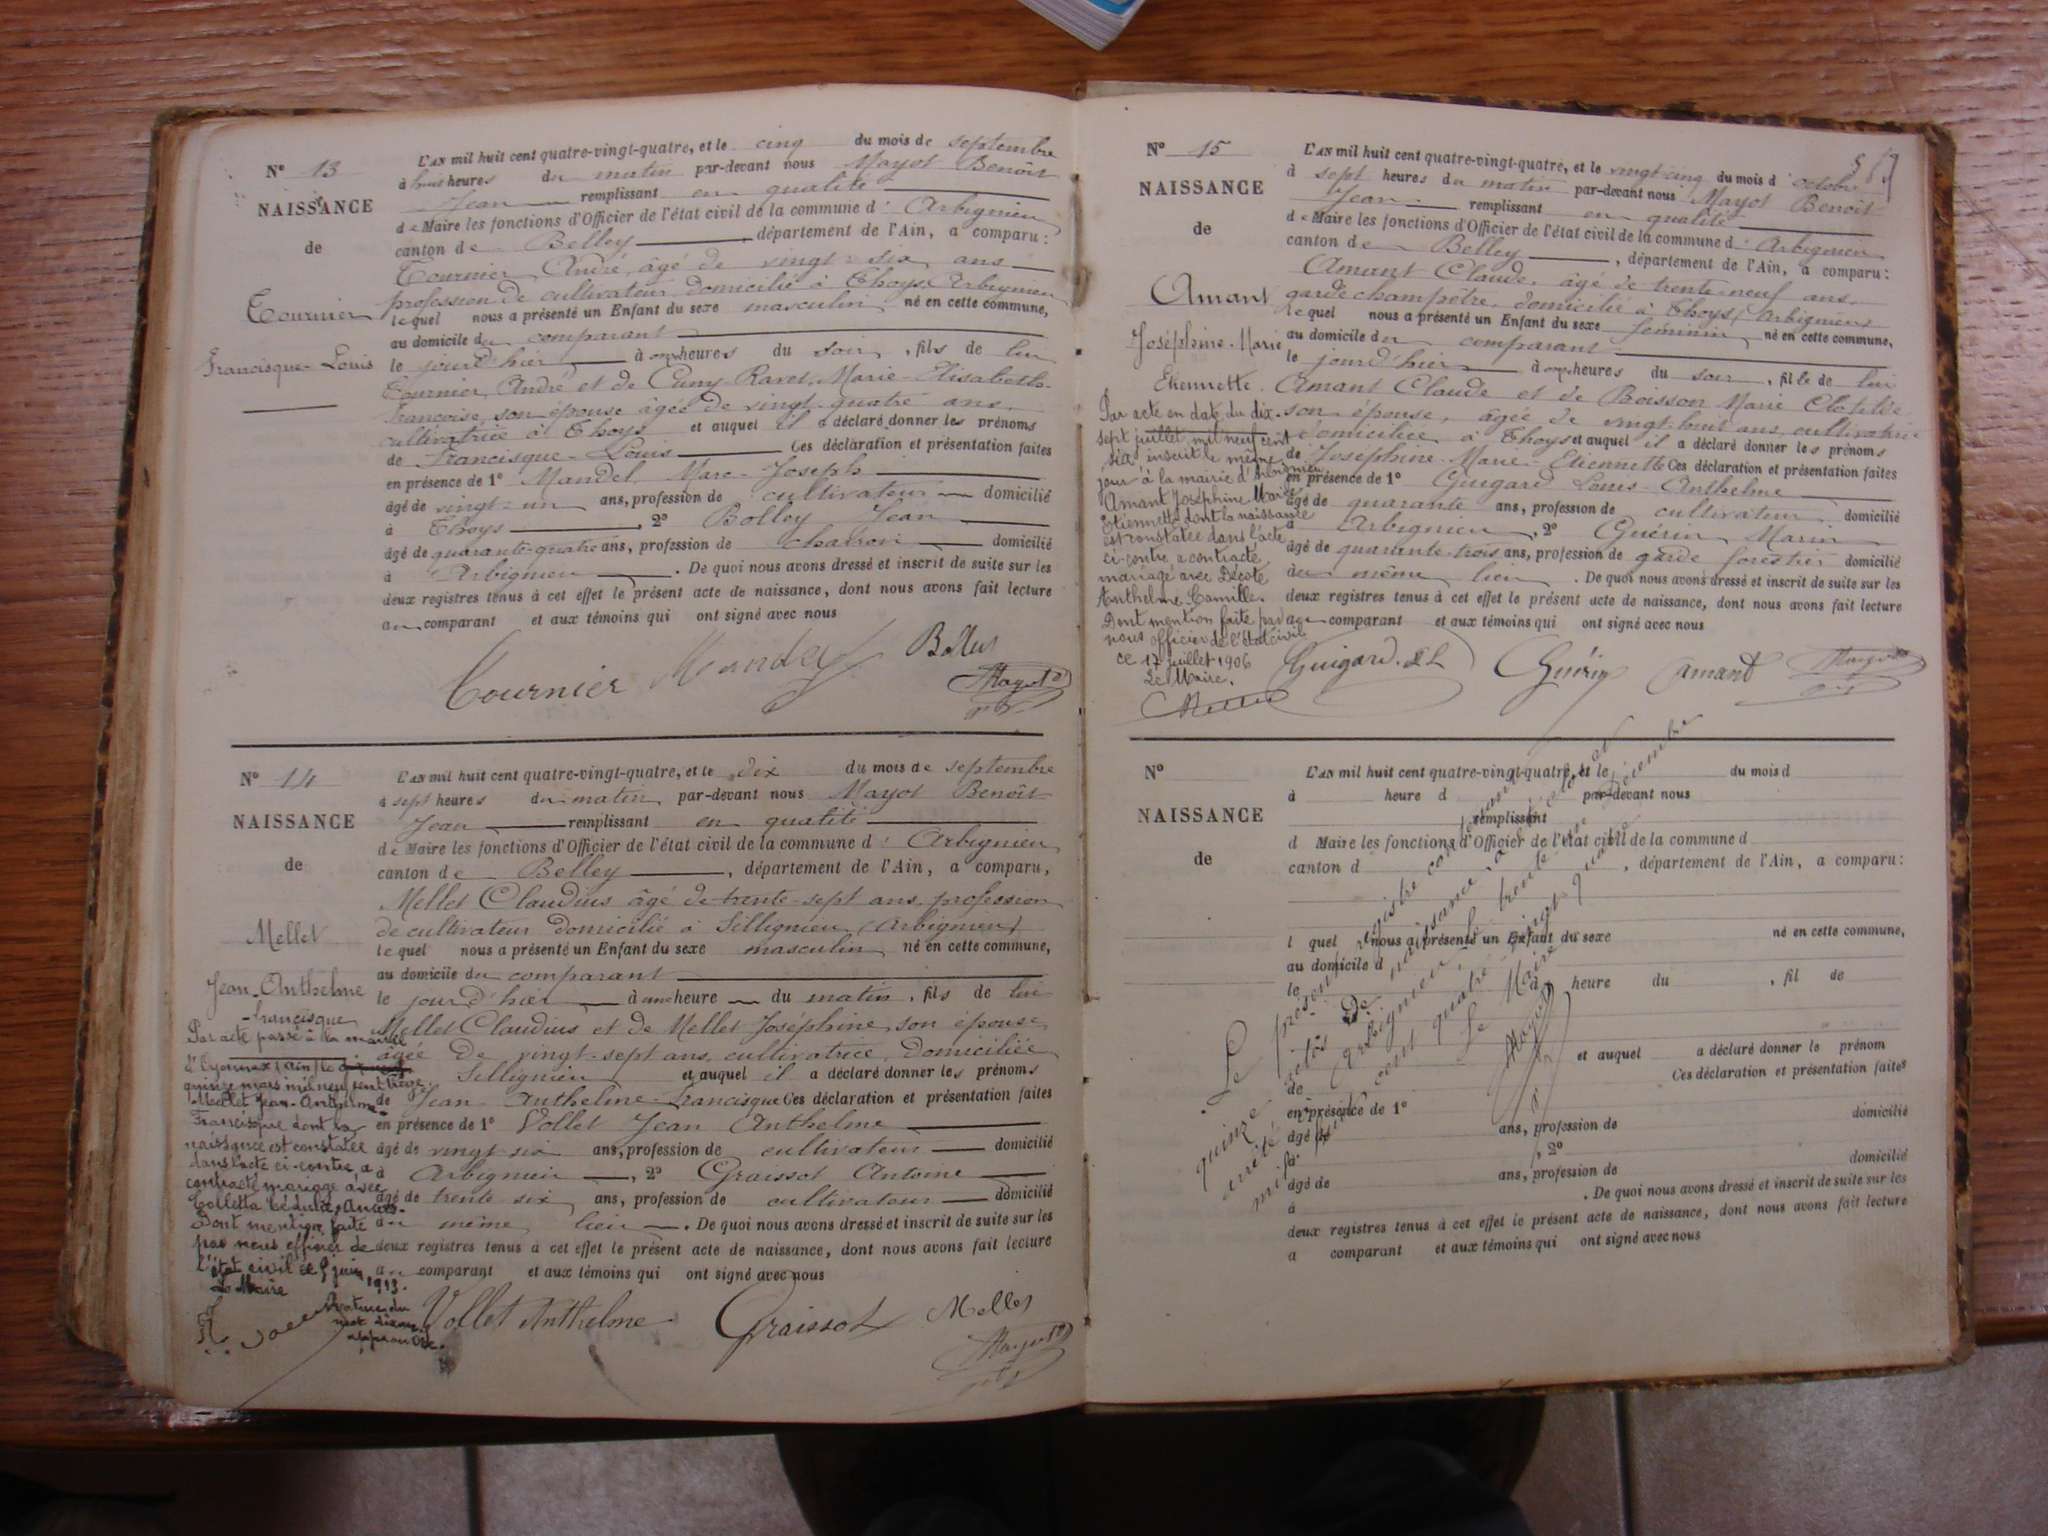 N° 13
NAISSANCE
de
Tournier
Francisque-Louis
L'AN mil huit cent quatre-vingt-quatre, et le cinq du mois de septembre
à huit heures du matin par-devant nous Mayot Benoît
Jean remplissant en qualité
de Maire les fonctions d'Officier de l'état civil de la commune d' Arbignieu
canton de Belley, département de l'Ain, a comparu:
Tournier André, âgé de vingt-six ans
profession de cultivateur domicilié à Thoys (Arbignieu)
lequel nous a présenté un Enfant du sexe masculin né en cette commune,
au domicile du comparant
le jourd'hier à onze heures du soir, fils de lui
Tournier, André et de Cuny Ravet, Marie-Elisabeth-
Françoise, son épouse âgée de vingt-quatre ans,
cultivatrice à Thoys et auquel il a déclaré donner les prénoms
de Francisque-Louis Ces déclaration et présentation faites
en présence de 1° Mandel Marc-Joseph
âgé de vingt-un ans, profession de cultivateur domicilié
à Thoys, 2° Bolley Jean
âgé de quarante-quatre ans, profession de charron domicilié
à Arbignieu. De quoi nous avons dressé et inscrit de suite sur les
deux registres tenus à cet effet le présent acte de naissance, dont nous avons fait lecture
au comparant et aux témoins qui ont signé avec nous
Tournier Mandel Mayot
N° 14
NAISSANCE
de
Mellet
Jean Anthelme
-francisque
L'AN mil huit cent quatre-vingt-quatre, et le dix du mois de septembre
à sept heures du matin, par-devant nous Mayot Benoît
Jean remplissant en qualité
de Maire les fonctions d'Officier de l'état civil de la commune d' Arbignieu
canton de Belley, département de l'Ain, a comparu,
Mellet Claudius âgé de trente-sept ans, profession
de cultivateur domicilié à Sillignieu (Arbignieu)
lequel nous a présenté un Enfant du sexe masculin né en cette commune,
au domicile du comparant
le jourd'hier à une heure du matin, fils de lui
Mellet Claudius et de Mellet Joséphine, son épouse
âgée de vingt-sept ans, cultivatrice, domiciliée
à Sillignieu et auquel il a déclaré donner les prénoms
de Jean Anthelme-francisque Ces déclaration et présentation faites
en présence de 1° Vollet Jean Anthelme
âgé de vingt-six ans, profession de cultivateur domicilié
à Arbignieu, 2° Graissot Antoine
âgé de trente six ans, profession de cultivateur domicilié
du même lieu. De quoi nous avons dressé et inscrit de suite sur les
deux registres tenus à cet effet le présent acte de naissance, dont nous avons fait lecture
au comparant et aux témoins qui ont signé avec nous
Vollet Anthelme Graissot Mellet
Mayot
Par acte passé à la mairie
d'Oyonnax (Ain) le
quinze mars mil neuf cent treize
Mellet Jean-Anthelme-
Francisque dont la
naissance est constatée
dans l'acte ci-contre, a
contracté mariage avec
Colletta
Dont mention faite
par nous officier de
l'état civil ce 5 juin
1913.
Le Maire
N° 15
NAISSANCE
de
Amant
Joséphine-Marie
Etiennette.
L'AN mil huit cent quatre-vingt-quatre, et le vingt cinq du mois d' octobre
à sept heures du matin par-devant nous Mayot Benoît
Jean remplissant en qualité
de Maire les fonctions d'Officier de l'état civil de la commune d' Arbignieu
canton de Belley, département de l'Ain, a comparu:
Amant Claude, âgé de trente-neuf ans,
garde champêtre, domicilié à Thoys (Arbignieu)
lequel nous a présenté un Enfant du sexe féminin né en cette commune,
au domicile du comparant
le jourd'hier à onze heures du soir, fille de lui
Amant Claude et de Boisson Marie Clotilde
son épouse, âgée de vingt-huit ans, cultivatrice
domiciliée à Thoys et auquel il a déclaré donner les prénoms
de Joséphine-Marie-Etiennette Ces déclaration et présentation faites
en présence de 1° Guigard Louis-Anthelme
âgé de quarante ans, profession de cultivateur domicilié
à Arbignieu, 2° Guérin Marin
âgé de quarante-trois ans, profession de garde forestier domicilié
du même lieu. De quoi nous avons dressé et inscrit de suite sur les
deux registres tenus à cet effet le présent acte de naissance, dont nous avons fait lecture
au comparant et aux témoins qui ont signé avec nous
Guigard Guérin Amant Mayot
Par acte en date du dix-
sept juillet mil neuf cent
six inscrit le même
jour à la mairie d'
Amant Joséphine Marie
Etiennette dont la naissance
est constatée dans l'acte
ci-contre a contracté
mariage avec Décote
Anthelme-Camille.
Dont mention faite par
nous officier de l'état civil
ce 17 juillet 1906
Le Maire.
N°
NAISSANCE
de
L'AN mil huit cent quatre-vingt-quatre, et le du mois d
à heure d par-devant nous
remplissant
d Maire les fonctions d'Officier de l'état civil de la commune d
canton d , département de l'Ain, a comparu:
l quel nous a présenté un Enfant du sexe né en cette commune,
au domicile d
le à heure du , fil de
et auquel a déclaré donner le prénom
de Ces déclaration et présentation faites
en présence de 1°
âgé de ans, profession de domicilié
à , 2°
âgé de ans, profession de domicilié
à . De quoi nous avons dressé et inscrit de suite sur les
deux registres tenus à cet effet le présent acte de naissance, dont nous avons fait lecture
a comparant et aux témoins qui ont signé avec nous
Le présent registre contenant
quinze actes de naissance, a été clos et
arrêté à Arbignieu, le trente un Décembre
mil huit cent quatre-vingt-quatre
Le Maire
Mayot